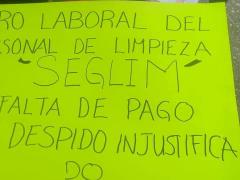 RO LABORAL DEL
RSONAL DE LIMPIEZA
"SEGLIM"
FALTA DE PAGO
DESPIDO INJUSTIFICA
DO